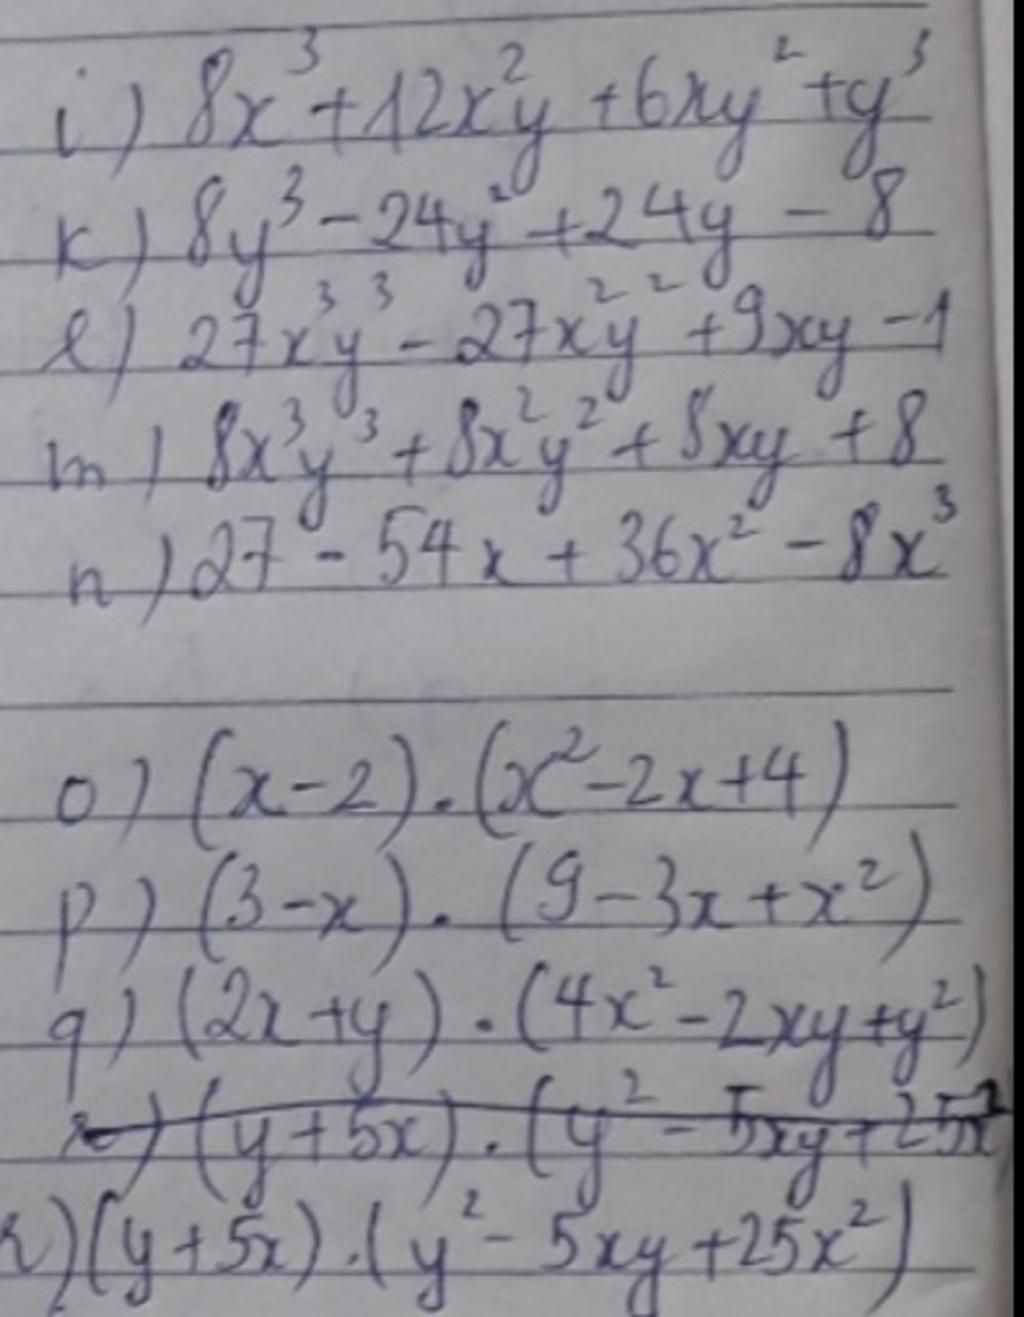 i) 8x³ + 12x²y + 6xy² + y³
k) 8y³ - 24y² + 24y - 8
l) 27x³y³ - 27x²y² + 9xy - 1
m) 8x³y³ + 8x²y² + 8xy + 8
n) 27 - 54x + 36x² - 8x³
o) (x-2).(x²-2x+4)
p) (3-x).(9-3x+x²)
q) (2x+y).(4x²-2xy+y²)
r) (y+5x).(y²-5xy+25x²)
r) (y+5x).(y²-5xy+25x²)